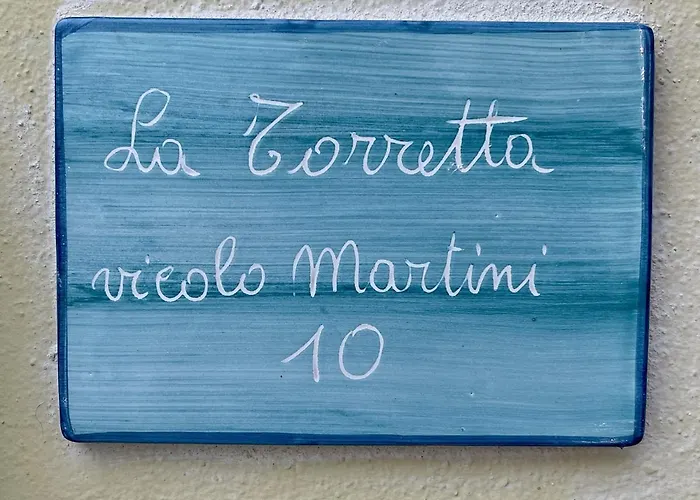 La Torretta
vicolo Martini
10